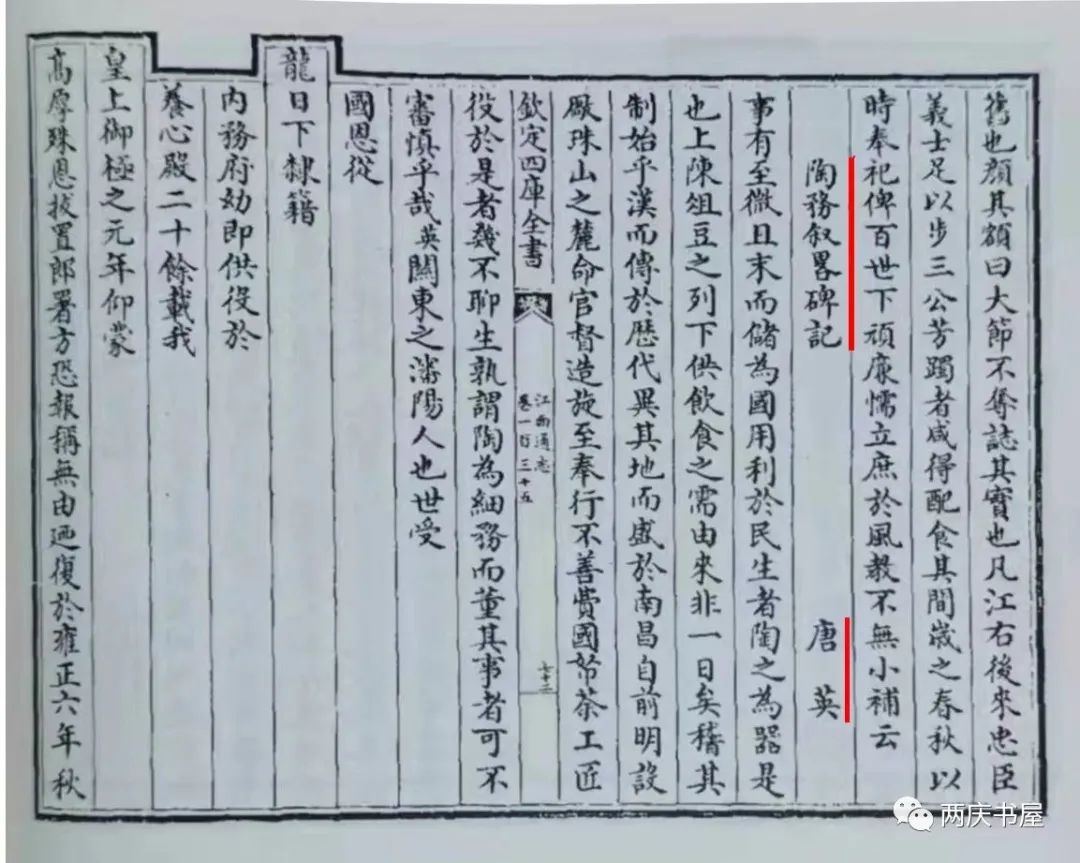 舊也顏其額曰大節不奪誌其實也凡江右後來忠臣
義士足以步三公芳躅者咸得配食其間歲之春秋以
時奉祀俾百世下頑廉懦立庶於風教不無小補云
陶務叙畧碑記 唐英
事有至微且末而儲為國用利於民生者陶之為器是
也上陳俎豆之列下供飲食之需由來非一日矣稽其
制始乎漢而傳於歷代異其地而盛於南昌自前明設
厰珠山之麓命官督造旋至奉行不善費國帑荼工匠
欽定四庫全書 江西通志 卷一百三十五 七十三
役於是者幾不聊生孰謂陶為細務而董其事者可不
審慎乎哉英關東之瀋陽人也世受
國恩從
龍日下隸籍
內務府幼即供役於
養心殿二十餘載我
皇上御極之元年仰蒙
高厚殊恩拔置郎署方恐報稱無由廼復於雍正六年秋
两庆书屋